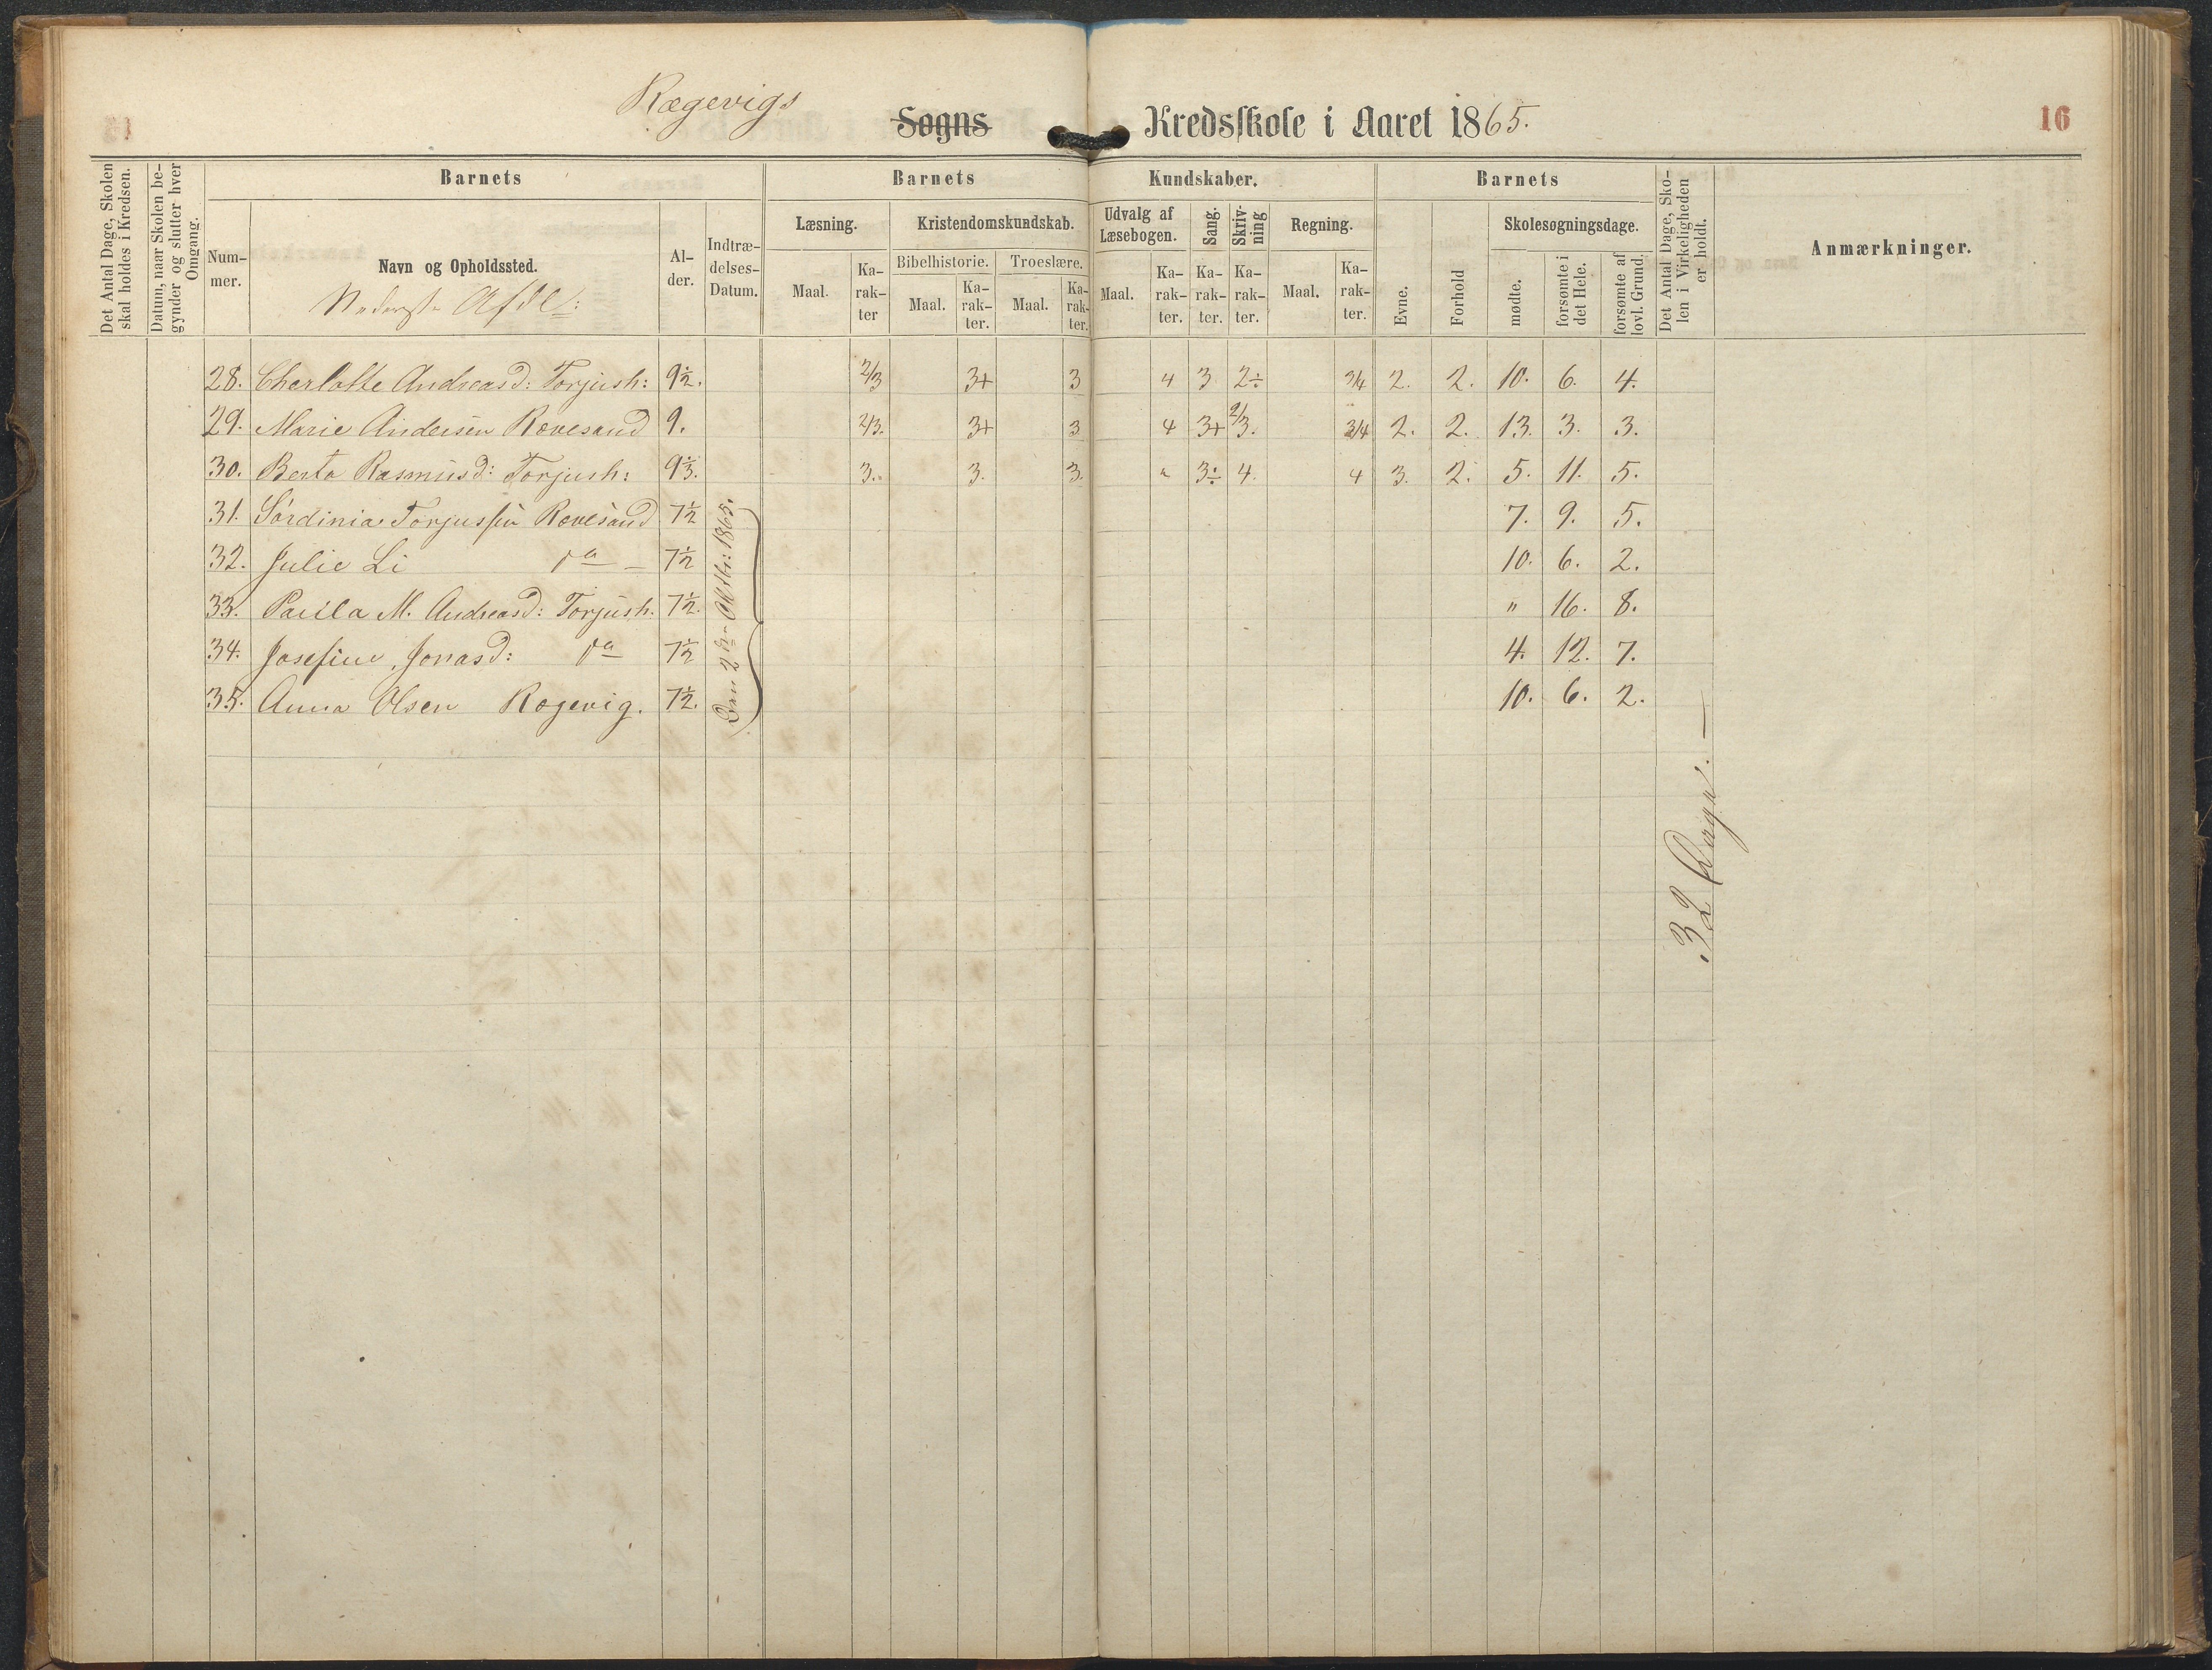 Rægevigs Sogns Kredsskole i Aaret 1865.
16
Det Antal Dage, Skolen skal holdes i Kredsen.
Datum, naar Skolen begynder og slutter hver Omgang.
Barnets
Nummer.
Navn og Opholdssted.
Nederste Afdl:
Alder.
Indtrædelses-Datum.
Barnets Kundskaber.
Læsning.
Maal.
Karakter
Kristendomskundskab.
Bibelhistorie.
Maal.
Karakter.
Troeslære.
Maal.
Karakter.
Udvalg af Læsebogen.
Maal.
Karakter.
Sang.
Karakter.
Skrivning
Karakter.
Regning.
Maal.
Karakter.
Barnets
Evne.
Forhold
Skolesøgningsdage.
mødte.
forsømte i det Hele.
forsømte af lovl. Grund.
Det Antal Dage, Skolen i Virkeligheden er holdt.
Anmærkninger.
28. Charlotte Andreasd: Torjush: 9½. 2/3 3+ 3 4 3 2÷ 3/4 2. 2. 10. 6. 4.
29. Marie Andersen Rævesand 9. 2/3. 3+ 3 4 3+ 2/3. 3/4 2. 2. 13. 3. 3.
30. Berta Rasmusd: Torjush: 9⅓. 3. 3. 3. " 3÷ 4. 4 3. 2. 5. 11. 5.
31. Sørdinia Torjussen Rævesand 7½ 7. 9. 5.
32. Julie Li da — 7½ 10. 6. 2.
33. Paulla M. Andreasd: Torjush. 7½. " 16. 8.
34. Josefine Jonasd: da 7½ 4. 12. 7.
35. Anna Olsen Rægevig. 7½. 10. 6. 2.
Den 2den Oktbr: 1865.
32 Dage. —